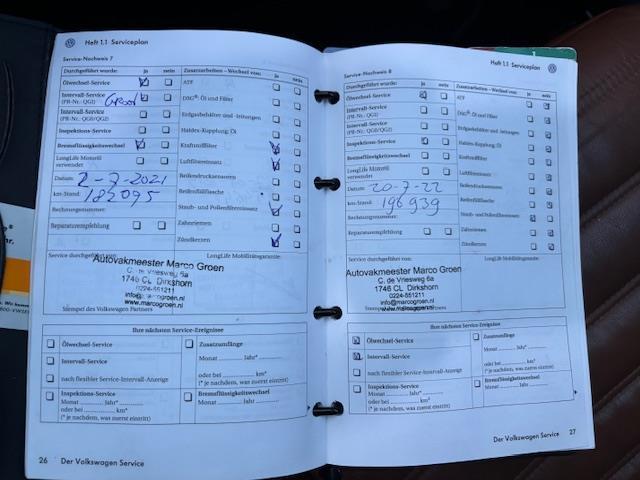 Heft 1.1 Serviceplan
Service-Nachweis 7
Durchgeführt wurde: ja nein
Zusatzarbeiten - Wechsel von: ja nein
Ölwechsel-Service
ATF
Intervall-Service
(PR-Nr.: QG1) Groot
DSG®: Öl und Filter
Intervall-Service
(PR-Nr.: QG0/QG2)
Erdgasbehälter und -leitungen
Inspektions-Service
Haldex-Kupplung: Öl
Bremsflüssigkeitswechsel
Kraftstofffilter
LongLife Motoröl
verwendet
Luftfiltereinsatz
Datum: 2-7-2021
Reifendrucksensoren
km-Stand: 185095
Reifenfüllflasche
Rechnungsnummer:
Staub- und Pollenfiltereinsatz
Reparaturempfehlung
Zahnriemen
Zündkerzen
Service durchgeführt von:
LongLife Mobilitätsgarantie:
Autovakmeester Marco Groen
C. de Vriesweg 6a
1746 CL Dirkshorn
0224-551211
www.marcogroen.nl
Stempel des Volkswagen Partners
Ihre nächsten Service-Ereignisse
Ölwechsel-Service
Zusatzumfänge
Monat .......... Jahr* ..........
Intervall-Service
oder bei .......... km*
nach flexibler Service-Intervall-Anzeige
(* je nachdem, was zuerst eintritt)
Inspektions-Service
Monat .......... Jahr* ..........
oder bei .......... km*
(* je nachdem, was zuerst eintritt)
Bremsflüssigkeitswechsel
Monat .......... Jahr ..........
26 Der Volkswagen Service
Heft 1.1 Serviceplan
Service-Nachweis 8
Durchgeführt wurde: ja nein
Zusatzarbeiten - Wechsel von: ja nein
Ölwechsel-Service
ATF
Intervall-Service
(PR-Nr.: QG1)
DSG®: Öl und Filter
Intervall-Service
(PR-Nr.: QG0/QG2)
Erdgasbehälter und -leitungen
Inspektions-Service
Haldex-Kupplung: Öl
Bremsflüssigkeitswechsel
Kraftstofffilter
LongLife Motoröl
verwendet
Luftfiltereinsatz
Datum: 20-7-22
Reifendrucksensoren
km-Stand: 196939
Reifenfüllflasche
Rechnungsnummer:
Staub- und Pollenfiltereinsatz
Reparaturempfehlung
Zahnriemen
Zündkerzen
Service durchgeführt von:
LongLife Mobilitätsgarantie:
Autovakmeester Marco Groen
C. de Vriesweg 6a
1746 CL Dirkshorn
0224-551211
info@marcogroen.nl
www.marcogroen.nl
Stempel des Volkswagen Partners
Ihre nächsten Service-Ereignisse
Ölwechsel-Service
Zusatzumfänge
Monat .......... Jahr* ..........
Intervall-Service
oder bei .......... km*
nach flexibler Service-Intervall-Anzeige
(* je nachdem, was zuerst eintritt)
Inspektions-Service
Monat .......... Jahr* ..........
oder bei .......... km*
(* je nachdem, was zuerst eintritt)
Bremsflüssigkeitswechsel
Monat .......... Jahr ..........
Der Volkswagen Service 27